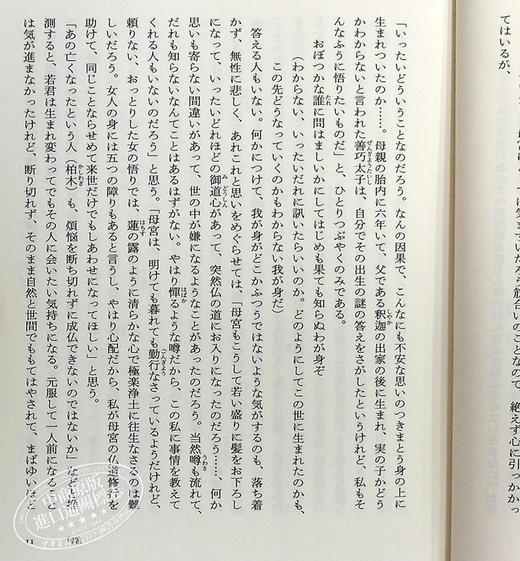 てはいるが、
け笑まいたる筋合いのことなので、絶えず心に引っかかっ
「いったいどういうことなのだろう。なんの因果で、こんなにも不安な思いのつきまとう身の上に
生まれついたのか……。母親の胎内に六年いて、父である釈迦の出家の後に生まれ、実の子かどう
かわからないと言われた善巧太子は、自分でその出生の謎の答えをさがしたというけれど、私もそ
んなふうに悟りたいものだ」と、ひとりつぶやくのみである。
おぼつかな誰に問はましいかにしてはじめも果ても知らぬわが身ぞ
(わからない、いったいだれに訊いたらいいのか。どのようにしてこの世に生まれたのかも、
この先どうなっていくのかもわからない我が身だ)
答える人もいない。何かにつけて、我が身がどこかふつうではないような気がするのも、落ち着
かず、無性に悲しく、あれこれと思いをめぐらせては、「母宮もこうして若い盛りに髪をお下ろし
になって、いったいどれほどの御道心があって、突然仏の道にお入りになったのだろう……、何か
思いも寄らない間違いがあって、世の中が嫌になるようなことがあったのだろう。当然噂も流れて、
だれも知らないなんてことはあるはずがない。やはり憚るような噂だから、この私に事情を教えて
くれる人もいないのだろう」と思う。「母宮は、明けても暮れても勤行なさっているようだけれど、
頼りない、おっとりした女の悟りでは、蓮の露のように清らかな心で極楽浄土に往生なさるのは難
しいだろう。女人の身には五つの障りもあると言うし、やはり心配だから、私が母宮の仏道修行を
助けて、同じことならせめて来世だけでもしあわせになってほしい」と思う。
「あの亡くなったという人(柏木)も、煩悩を断ち切れずに成仏できないのではないか」などと推
測すると、若君は生まれ変わってでもその人に会いたい気持ちになる。元服して一人前になること
は気が進まなかったけれど、断り切れず、そのまま自然と世間でももてはやされて、まばゆいほど
11
匂宮